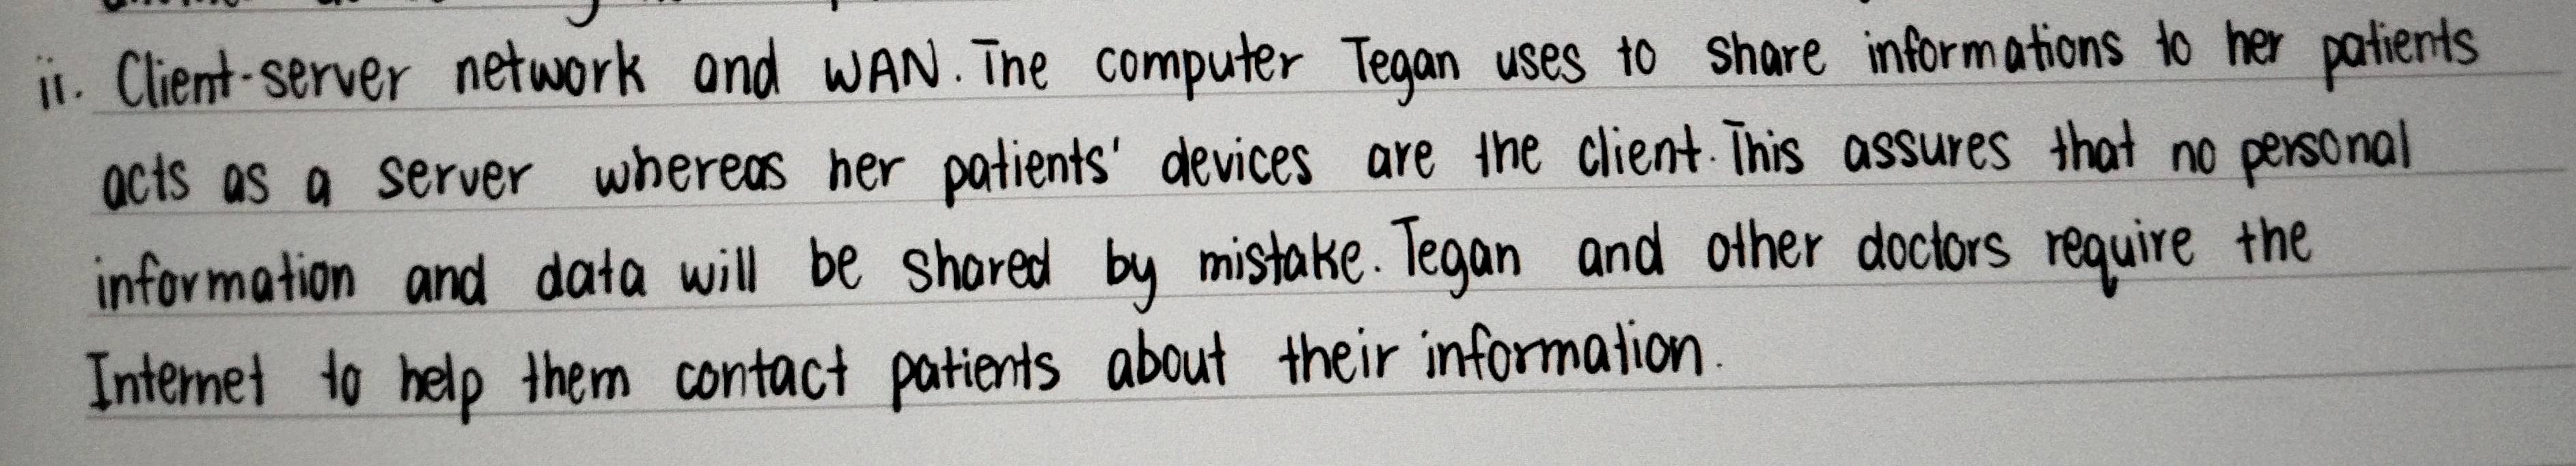 ii. Client-server network and WAN. The computer Tegan uses to share informations to her patients
acts as a server whereas her patients' devices are the client. This assures that no personal
information and data will be shared by mistake. Tegan and other doctors require the
Internet to help them contact patients about their information.